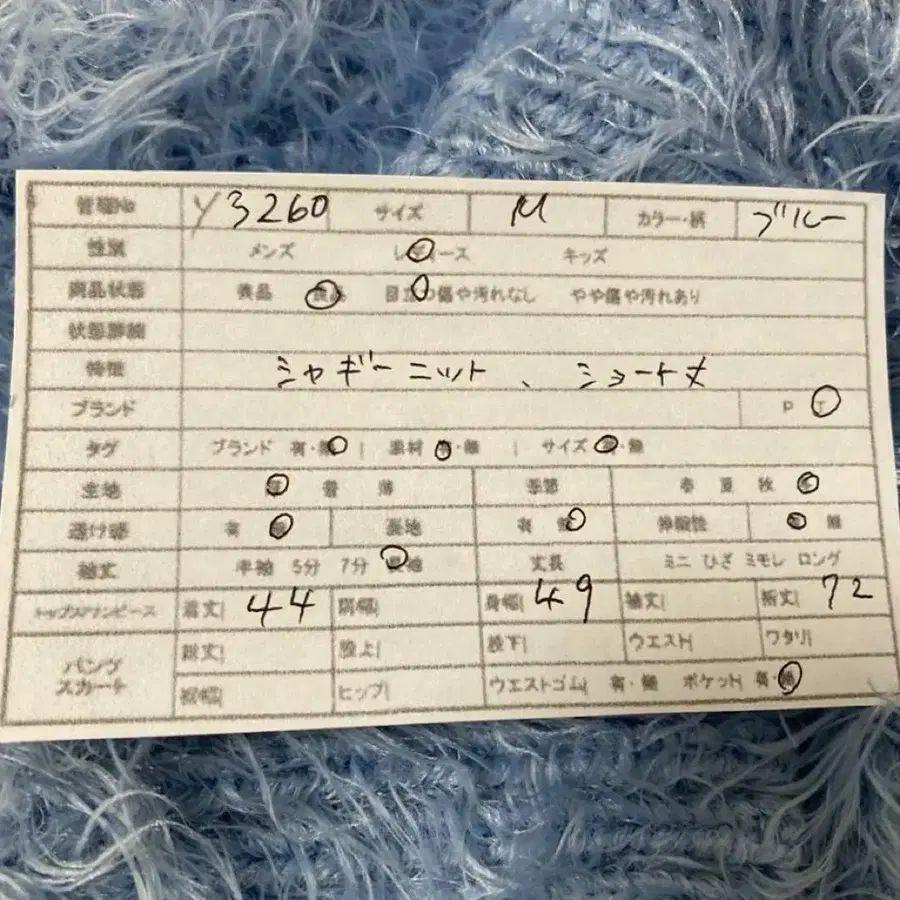 管理No Y3260 サイズ M カラー・柄 ブルー
性別 メンズ レディース キッズ
商品状態 美品 良品 目立つ傷や汚れなし やや傷や汚れあり
状態詳細
特徴 シャギーニット、ショート丈
ブランド P
タグ ブランド 有・無 | 素材 有・無 | サイズ 有・無
生地 厚 普 薄 季節 春 夏 秋 冬
透け感 有 無 裏地 有 無 伸縮性 有 無
袖丈 半袖 5分 7分 長袖 丈長 ミニ ひざ ミモレ ロング
トップス/ワンピース 着丈| 44 肩幅| 身幅| 49 袖丈| 裄丈| 72
パンツ スカート 総丈| 股上| 股下| ウエスト| ワタリ|
裾幅| ヒップ| ウエストゴム| 有・無 ポケット| 有・無